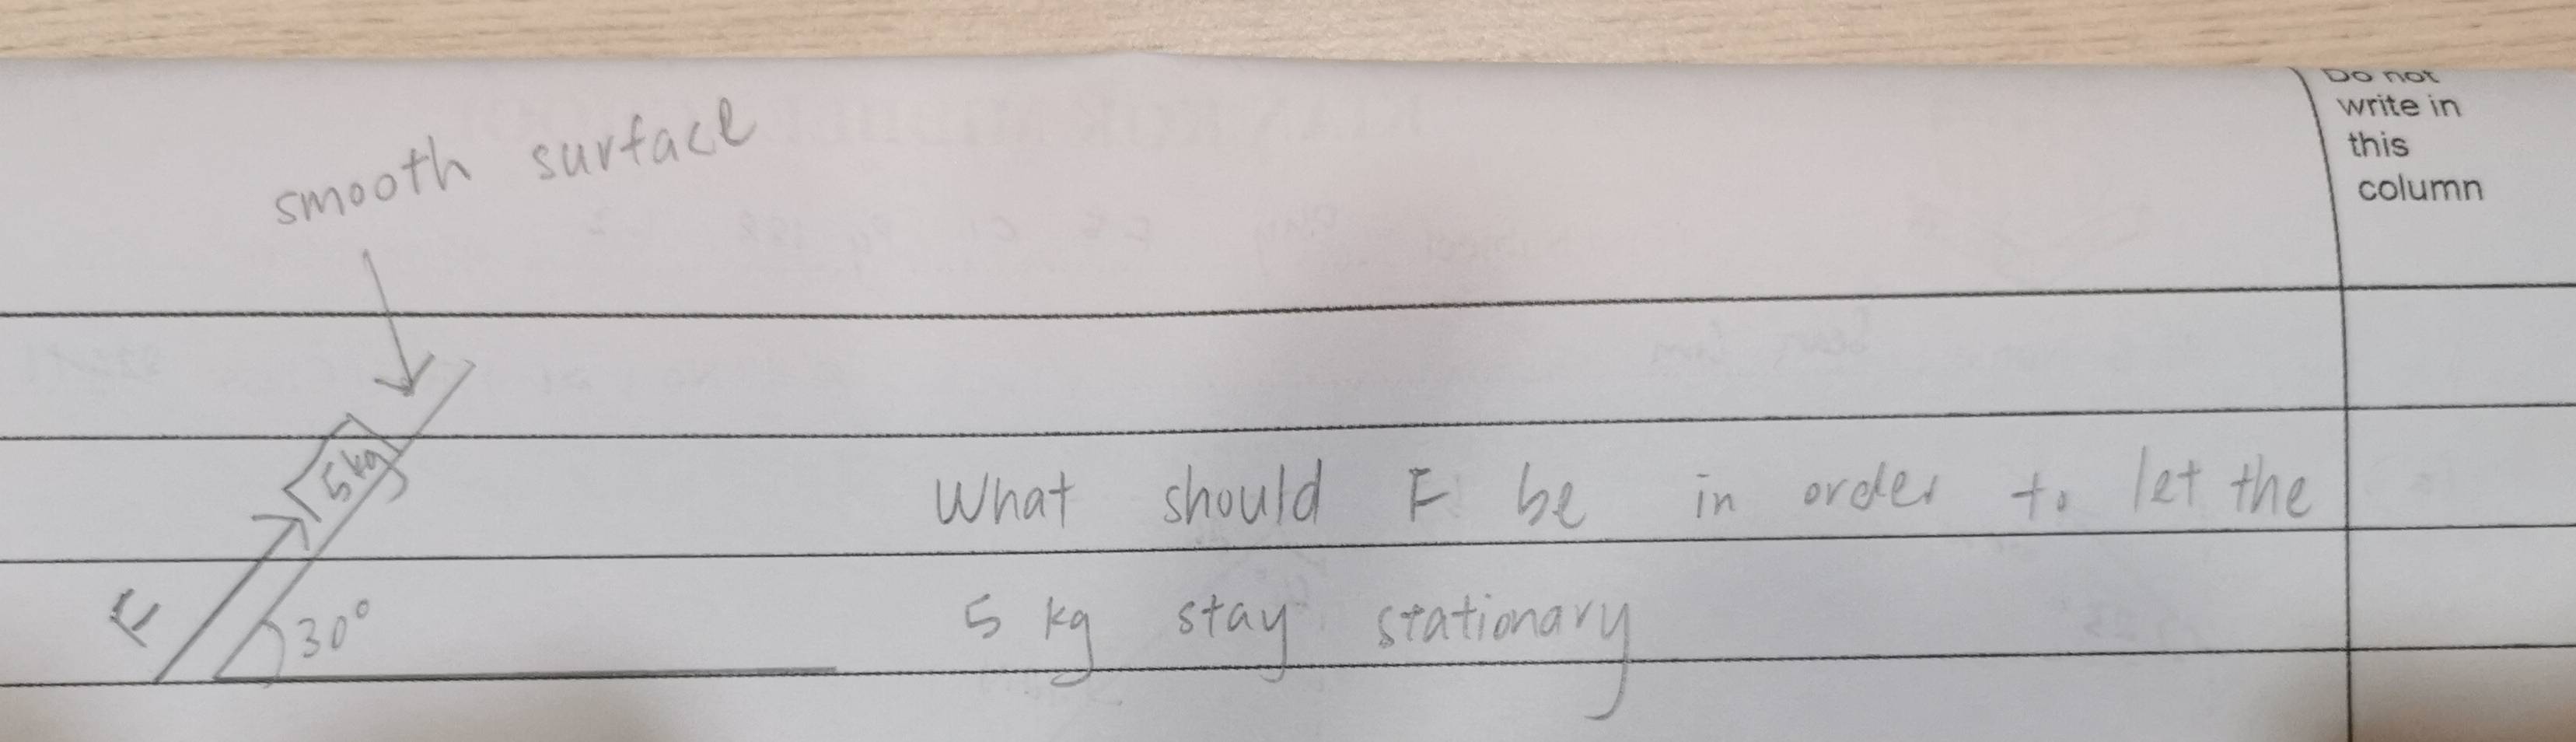 Do not
write in
this
column
smooth surface
5kg
F
30°
What should F be in order to let the
5 kg stay stationary